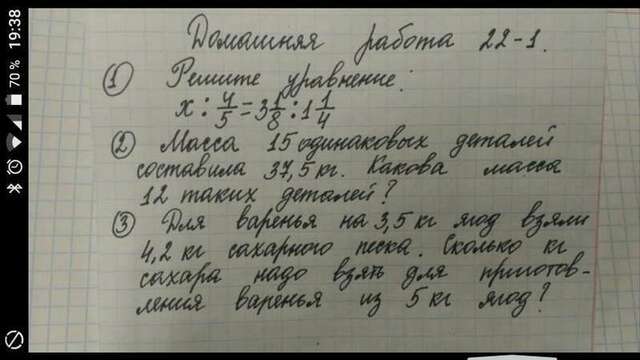 19:38
70 %
Домашняя работа 22-1.
① Решите уравнение:
x : 4/5 = 3 1/8 : 1 1/4
② Масса 15 одинаковых деталей
составила 37,5 кг. Какова масса
12 таких деталей?
③ Для варенья на 3,5 кг ягод взяли
4,2 кг сахарного песка. Сколько кг
сахара надо взять для приготов-
ления варенья из 5 кг ягод?